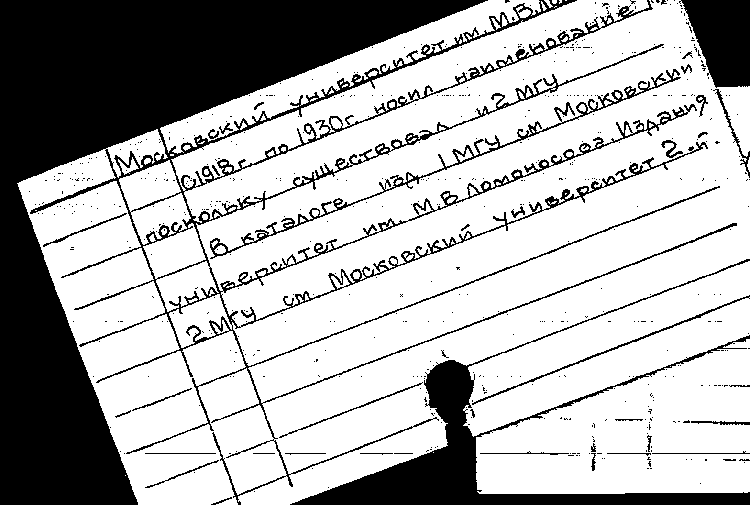 Московский университет им. М.В.
С 1918г. по 1930г. носил наименование
поскольку существовал и 2 МГУ
В каталоге изд. 1 МГУ см Московский
университет им. М.В Ломоносова. Издания
2 МГУ см. Московский университет, 2-й.